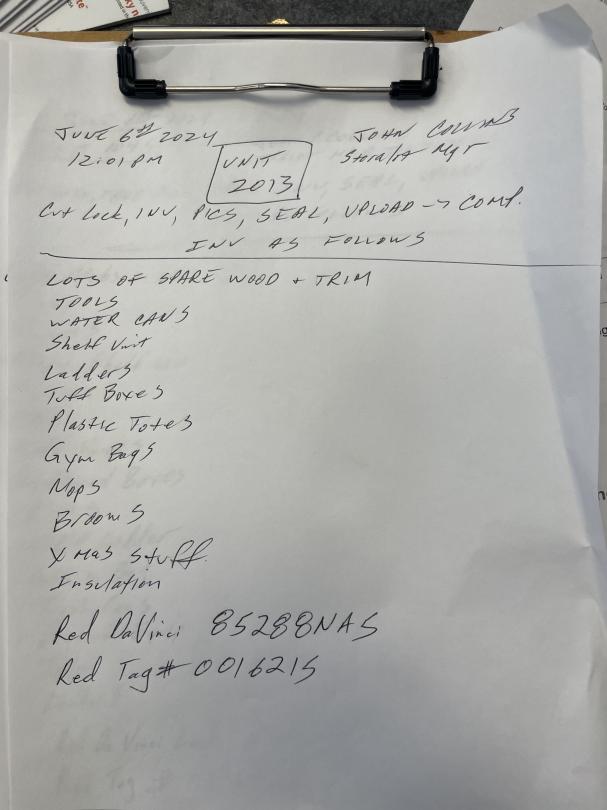 JUNE 6th 2024
12:01 PM
UNIT
2013
JOHN COLLINS
Mgr
Cut Lock, INV, PICS, SEAL, UPLOAD -> COMP.
INV AS FOLLOWS
LOTS OF SPARE WOOD + TRIM
TOOLS
WATER CANS
Shelf Unit
Ladders
Tuff Boxes
Plastic Totes
Gym Bags
Mops
Brooms
Xmas stuff.
Insulation
Red DaVinci 85288NAS
Red Tag# 0016215